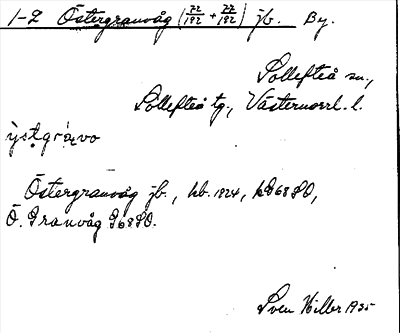 1-2 Östergranvåg (72/192 + 72/192) jb. By.
Sollefteå sn.,
Sollefteå tg., Västernorrl. l.
Östergranvåg jb., kb. 1824,
Ö. Granvåg
Sven Hiller 1935